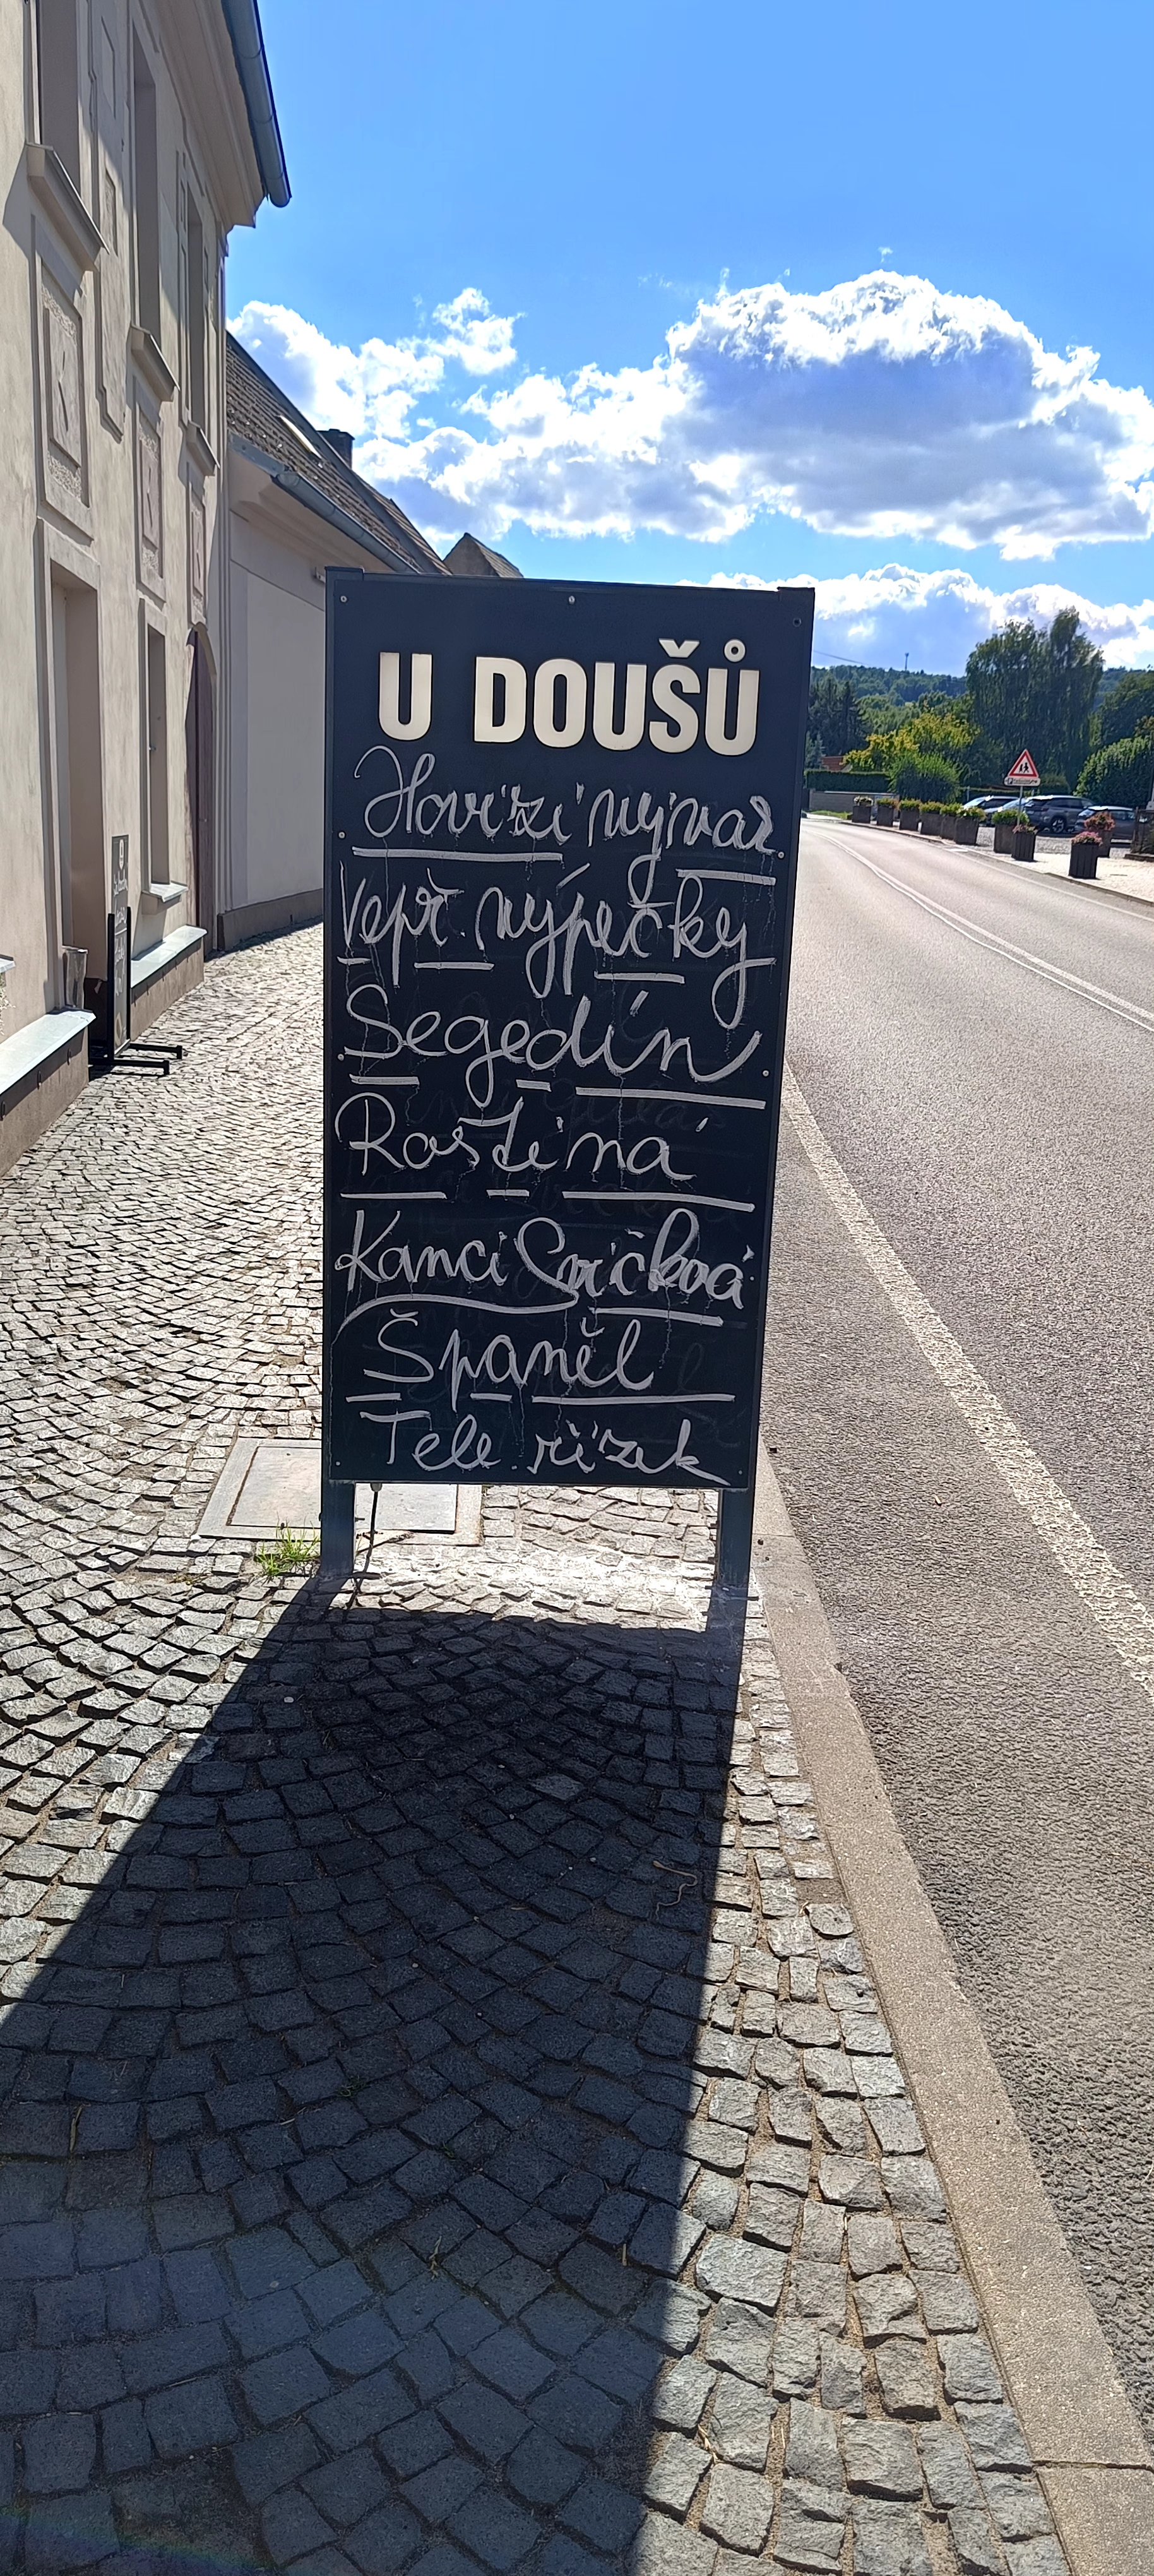 U DOUŠŮ
Hovězí vývar
Vepř. výpečky
Segedín
Roštěná
Kančí Svíčková
Španěl
Tele. řízek